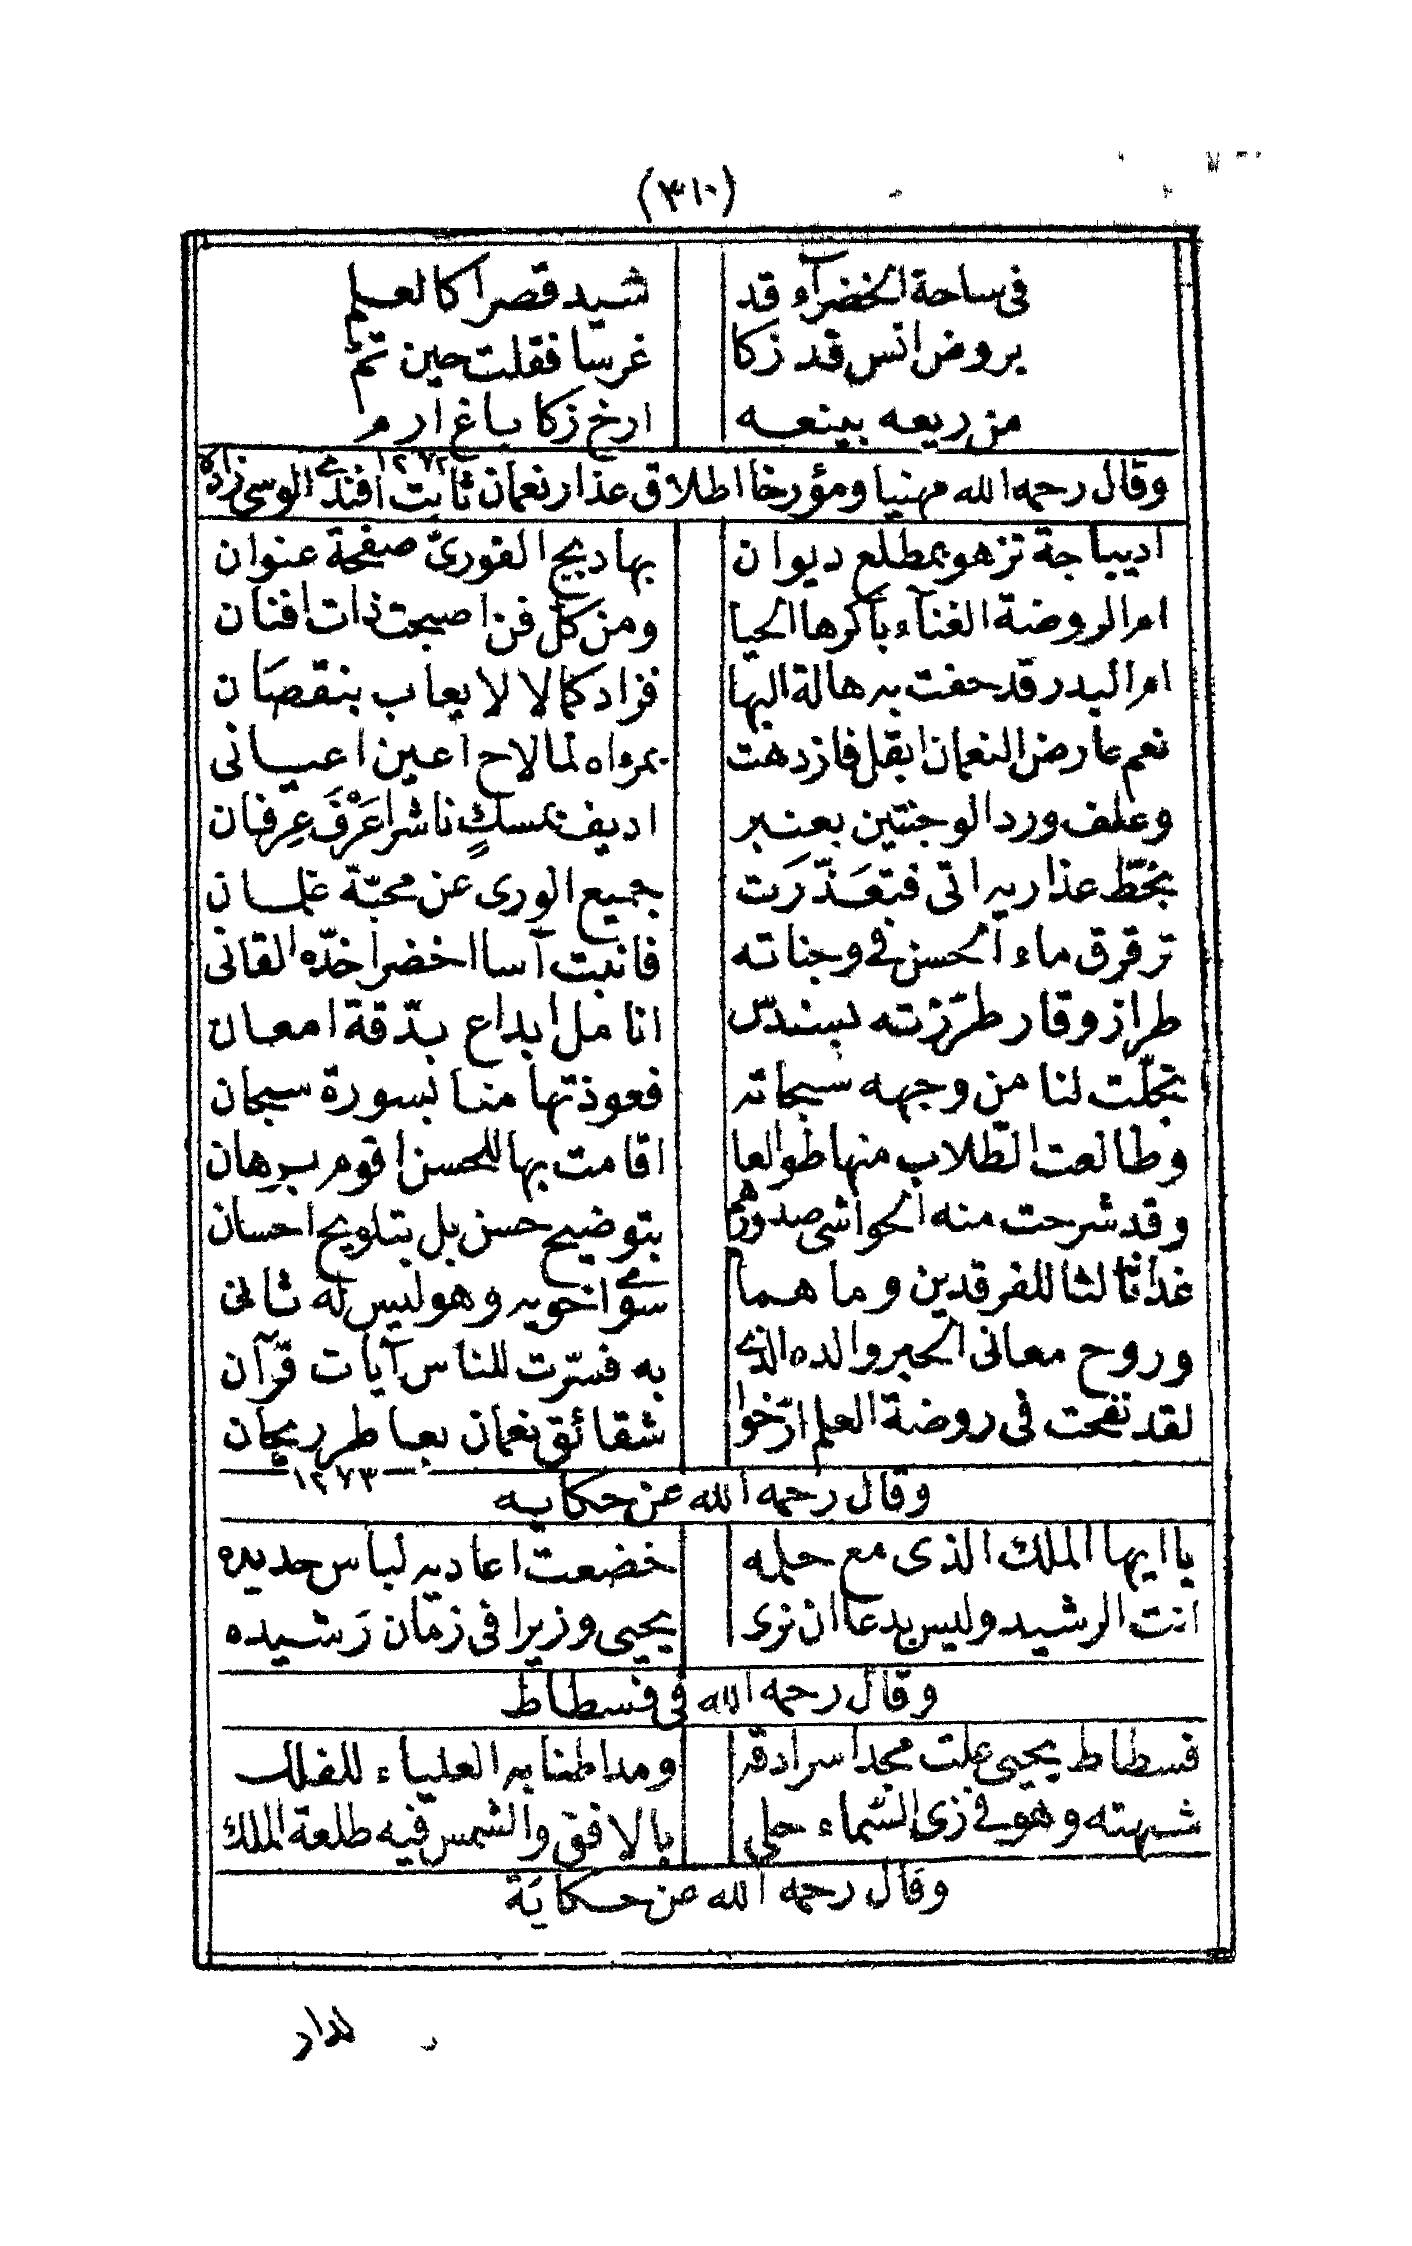 (٣١٠)
فى ساحة الخضرآء قد شيد قصرا كالعلم
بروض انس قد زكا غرسا فقلت حين تم
من ريعه بينعه ارخ زكا باغ ارم
١٢٧٢
وقال رحمه الله مهنيا ومؤرخا اطلاق عذار نعمان ثابت افندي الوسى زاده
اديباجة تزهو بمطلع ديوان بها ديج الفورىّ صفحة عنوان
ام الروضة الغنآء باكرها الحيا ومن كل فن اصبحت ذات افنان
ام البدر قد حفت به هالة البها فزاد كمالا لا يعاب بنقصان
نعم عارض النعمان ابقل فازدهت بمرءاه لما لاح اعين اعيانى
وغلف ورد الوجنتين بعنبر اديف بمسكٍ ناشرا عَرْفَ عِرفان
بخطّ عذاريه اتى فتعَذّرَت جميع الورى عن محبّة غلمان
ترقرق ماء الحسن فى وجناته فانبت آسا اخضرا خدّه القانى
طراز وقار طرّزته بسندس انامل ابداع بدّقة امعان
تجلّت لنا من وجهه سبحاته فعوذتها منا بسورة سبحان
وطالعت الطلاب منها طوالعا اقامت بها للحسن اقوم برهان
وقد شرحت منه الحواشى صدورهم بتوضيح حسن بل بتلويح احسان
غدا ثالثا للفرقدين وما هما سوى اخويه وهو ليس له ثانى
وروح معانى الحبر والده الذي به فسّرت للناس آيات قرآن
لقد نفحت فى روضة العلم ارّخوا شقائق نعمان بعاطر ريحان
١٢٧٣
وقال رحمه الله عن حكايه
يا ايها الملك الذى مع حلمه خضعت اعاديه لباس حديده
انت الرشيد وليس بدعا ان نرى يحيى وزيرا فى زمان رَشيده
وقال رحمه الله فى فسطاط
فسطاط يحيى علت مجدا سرادقه ومد اطنابه العلياء للفلك
شبهته وهو فى زى السّماء حلى بالافق والشمس فيه طلعة الملك
وقال رحمه الله عن حكايَة